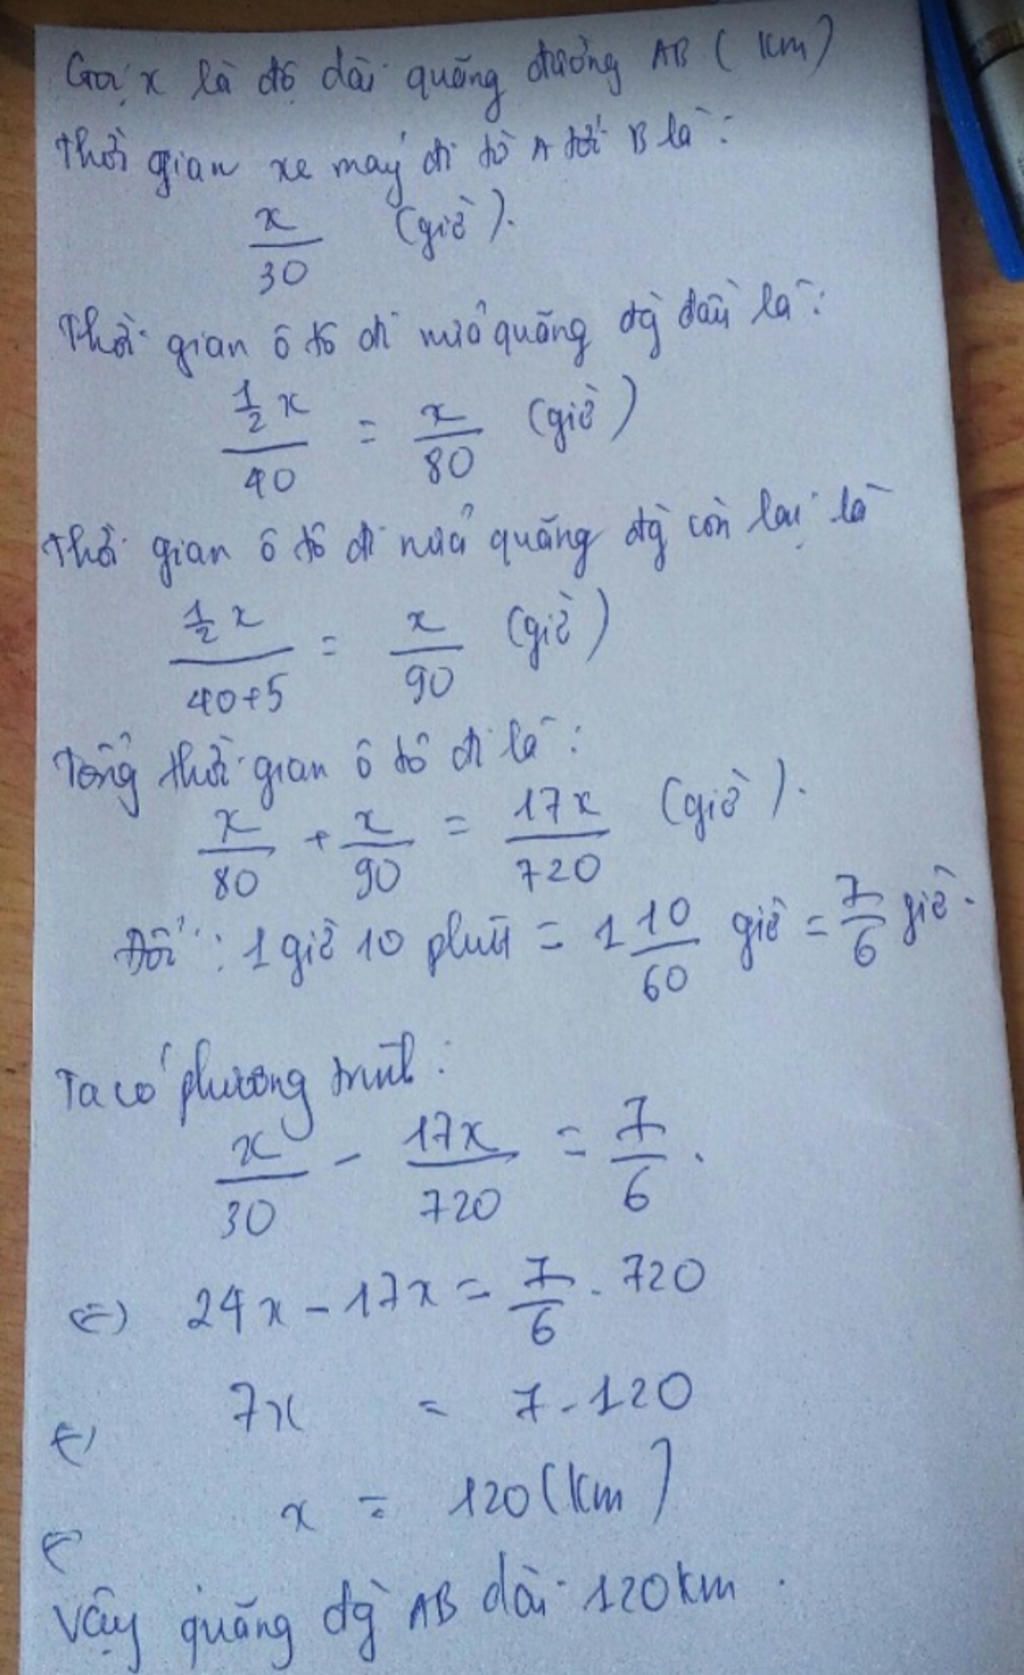 Gọi x là độ dài quãng đường AB (km)
Thời gian xe máy đi từ A tới B là:
x/30 (giờ).
Thời gian ô tô đi nửa quãng đg đầu là:
1/2 x / 40 = x/80 (giờ)
Thời gian ô tô đi nửa quãng đg còn lại là
1/2 x / 40+5 = x/90 (giờ)
Tổng thời gian ô tô đi là:
x/80 + x/90 = 17x/720 (giờ).
Đổi: 1 giờ 10 phút = 1 10/60 giờ = 7/6 giờ.
Ta có phương trình:
x/30 - 17x/720 = 7/6.
(=) 24x - 17x = 7/6 . 720
(=) 7x = 7.120
x = 120 (km)
Vậy quãng đg AB dài 120km.